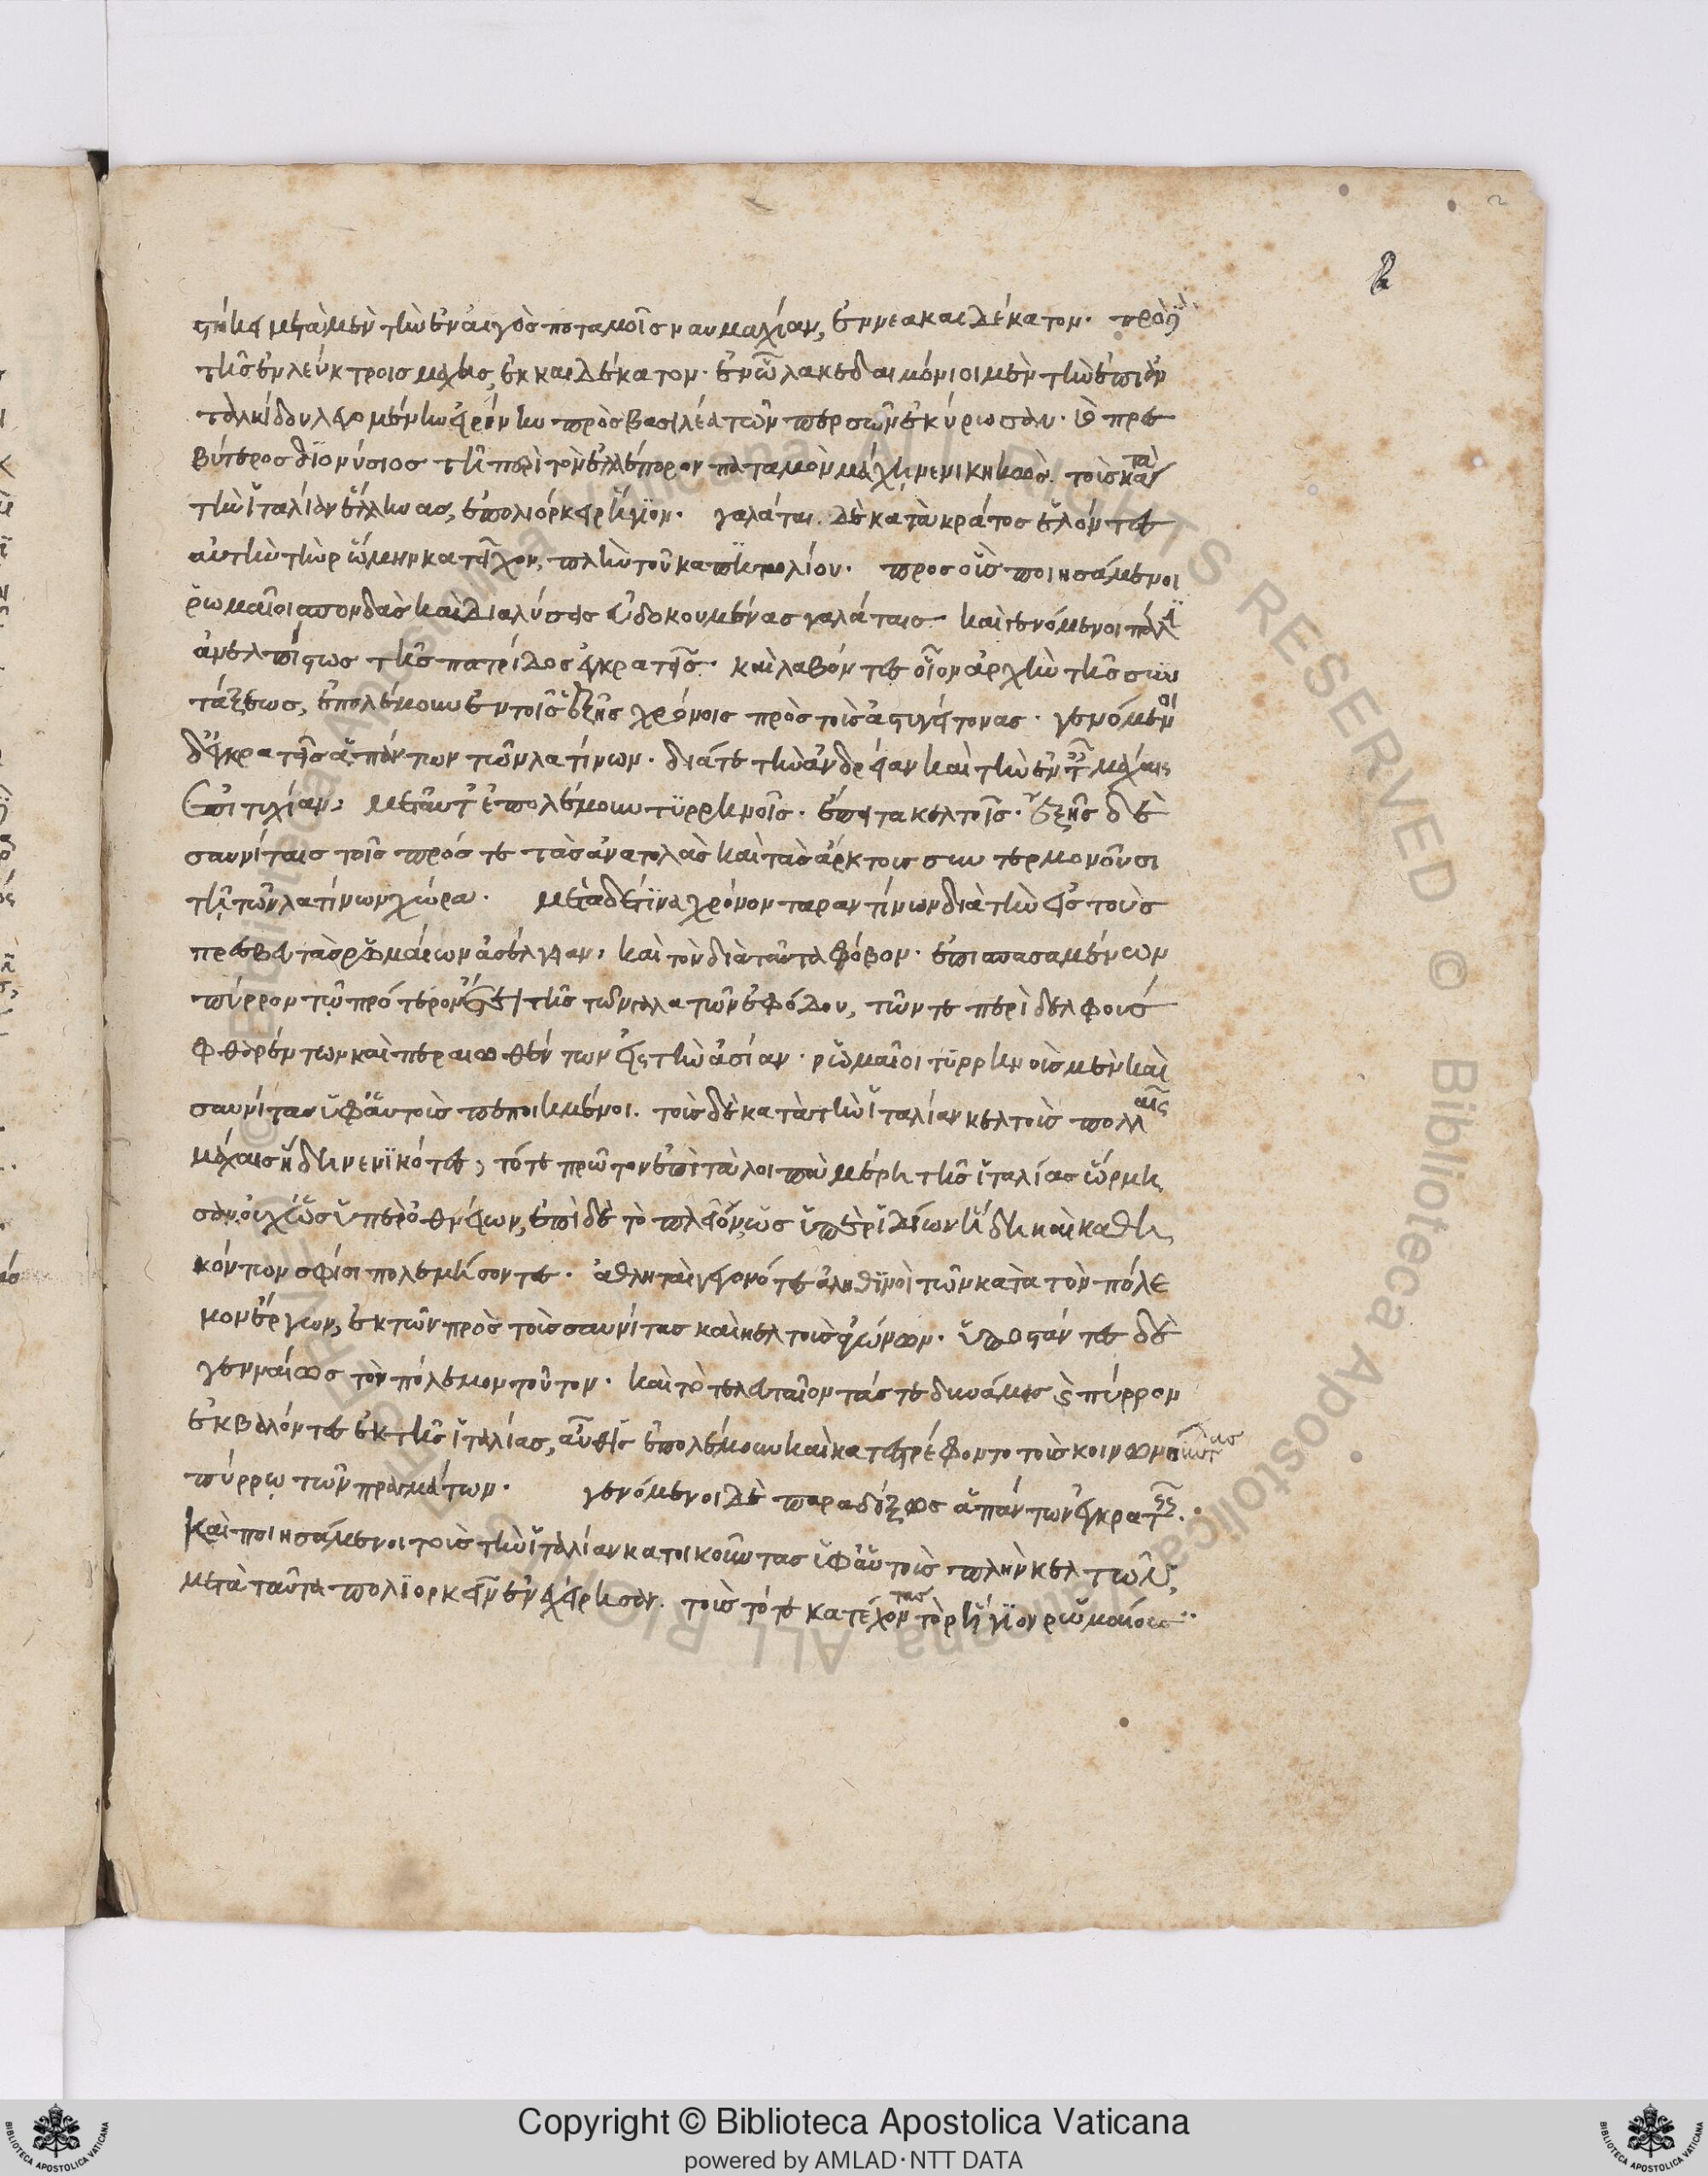 2
στήκει μετὰ μὲν τὴν ἐν αἰγὸς ποταμοῖς ναυμαχίαν, ἐννεακαιδέκατον. πρὸ δὲ
τῆς ἐν λεύκτροις μάχης, ἑκκαιδέκατον. ἐν ᾧ λακεδαιμόνιοι μὲν τὴν ἐπὶ ἀν
ταλκίδου λεγομένην εἰρήνην πρὸς βασιλέα τῶν περσῶν ἐκύρωσαν. ὁ πρεσ
βύτερος διονύσιος τῇ περὶ τὸν ἐλλέπορον ποταμὸν μάχῃ νενικηκὼς τοὺς κατὰ
τὴν ἰταλίαν ἕλληνας, ἐπολιόρκει ῥήγιον. γαλάται δὲ κατὰ κράτος ἑλόντες
αὐτὴν τὴν ῥώμην κατεῖχον, πλὴν τοῦ καπετωλίου. πρὸς οὓς ποιησάμενοι
ῥωμαῖοι σπονδὰς καὶ διαλύσεις εὐδοκουμένας γαλάταις καὶ γενόμενοι πάλιν
ἀνελπίστως τῆς πατρίδος ἐγκρατεῖς. καὶ λαβόντες οἷον ἀρχὴν τῆς συν
τάξεως, ἐπολέμουν ἐν τοῖς ἑξῆς χρόνοις πρὸς τοὺς ἀστυγείτονας. γενόμενοι
δ' ἐγκρατεῖς ἁπάντων τῶν λατίνων. διά τε τὴν ἀνδρείαν καὶ τὴν ἐν ταῖς μάχαις
ἐπιτυχίαν, μετὰ ταῦτ' ἐπολέμουν τυρρηνοῖς. ἔπειτα κελτοῖς. ἑξῆς δὲ
σαυνίταις τοῖς πρός τε τὰς ἀνατολὰς καὶ τὰς ἄρκτους συντερμονοῦσι
τῇ τῶν λατίνων χώρᾳ. μετὰ δέ τινα χρόνον ταραντίνων διὰ τὴν εἰς τοὺς
πρεσβευτὰς ῥωμαίων ἀσέλγειαν, καὶ τὸν διὰ ταῦτα φόβον. ἐπισπασαμένων
πύρρον τῷ πρότερον ἔτει τῆς τῶν γαλατῶν ἐφόδου, τῶν τε περὶ δελφοὺς
φθαρέντων καὶ περαιωθέντων εἰς τὴν ἀσίαν. ῥωμαῖοι τυρρηνοὺς μὲν καὶ
σαυνίτας ὑφ' αὑτοὺς πεποιημένοι. τοὺς δὲ κατὰ τὴν ἰταλίαν κελτοὺς πολλαῖς
μάχαις ἤδη νενικότες, τότε πρῶτον ἐπὶ τὰ λοιπὰ μέρη τῆς ἰταλίας ὥρμη
σαν οὐχ ὡς ὑπὲρ ὀθνείων, ἐπὶ δὲ τὸ πλεῖον ὡς ὑπὲρ ἰδίων ἤδη καὶ καθη
κόντων σφίσι πολεμήσοντες. ἀθληταὶ γεγονότες ἀληθινοὶ τῶν κατὰ τὸν πόλε
μον ἔργων, ἐκ τῶν πρὸς τοὺς σαυνίτας καὶ κελτοὺς ἀγώνων. ὑποστάντες δὲ
γενναίως τὸν πόλεμον τοῦτον. καὶ τὸ τελευταῖον τάς τε δυνάμεις καὶ πύρρον
ἐκβαλόντες ἐκ τῆς ἰταλίας, αὖθις ἐπολέμουν καὶ κατεστρέφοντο τοὺς κοινωνήσαντας
πύρρῳ τῶν πραγμάτων. γενόμενοι δὲ παραδόξως ἁπάντων ἐγκρατεῖς.
καὶ ποιησάμενοι τοὺς τὴν ἰταλίαν κατοικοῦντας ὑφ' αὑτοὺς πλὴν κελτῶν,
μετὰ ταῦτα πολιορκεῖν ἐνεχείρησαν. τοὺς τότε κατέχοντας τὸ ῥήγιον ῥωμαίους.
Copyright © Biblioteca Apostolica Vaticana
powered by AMLAD·NTT DATA